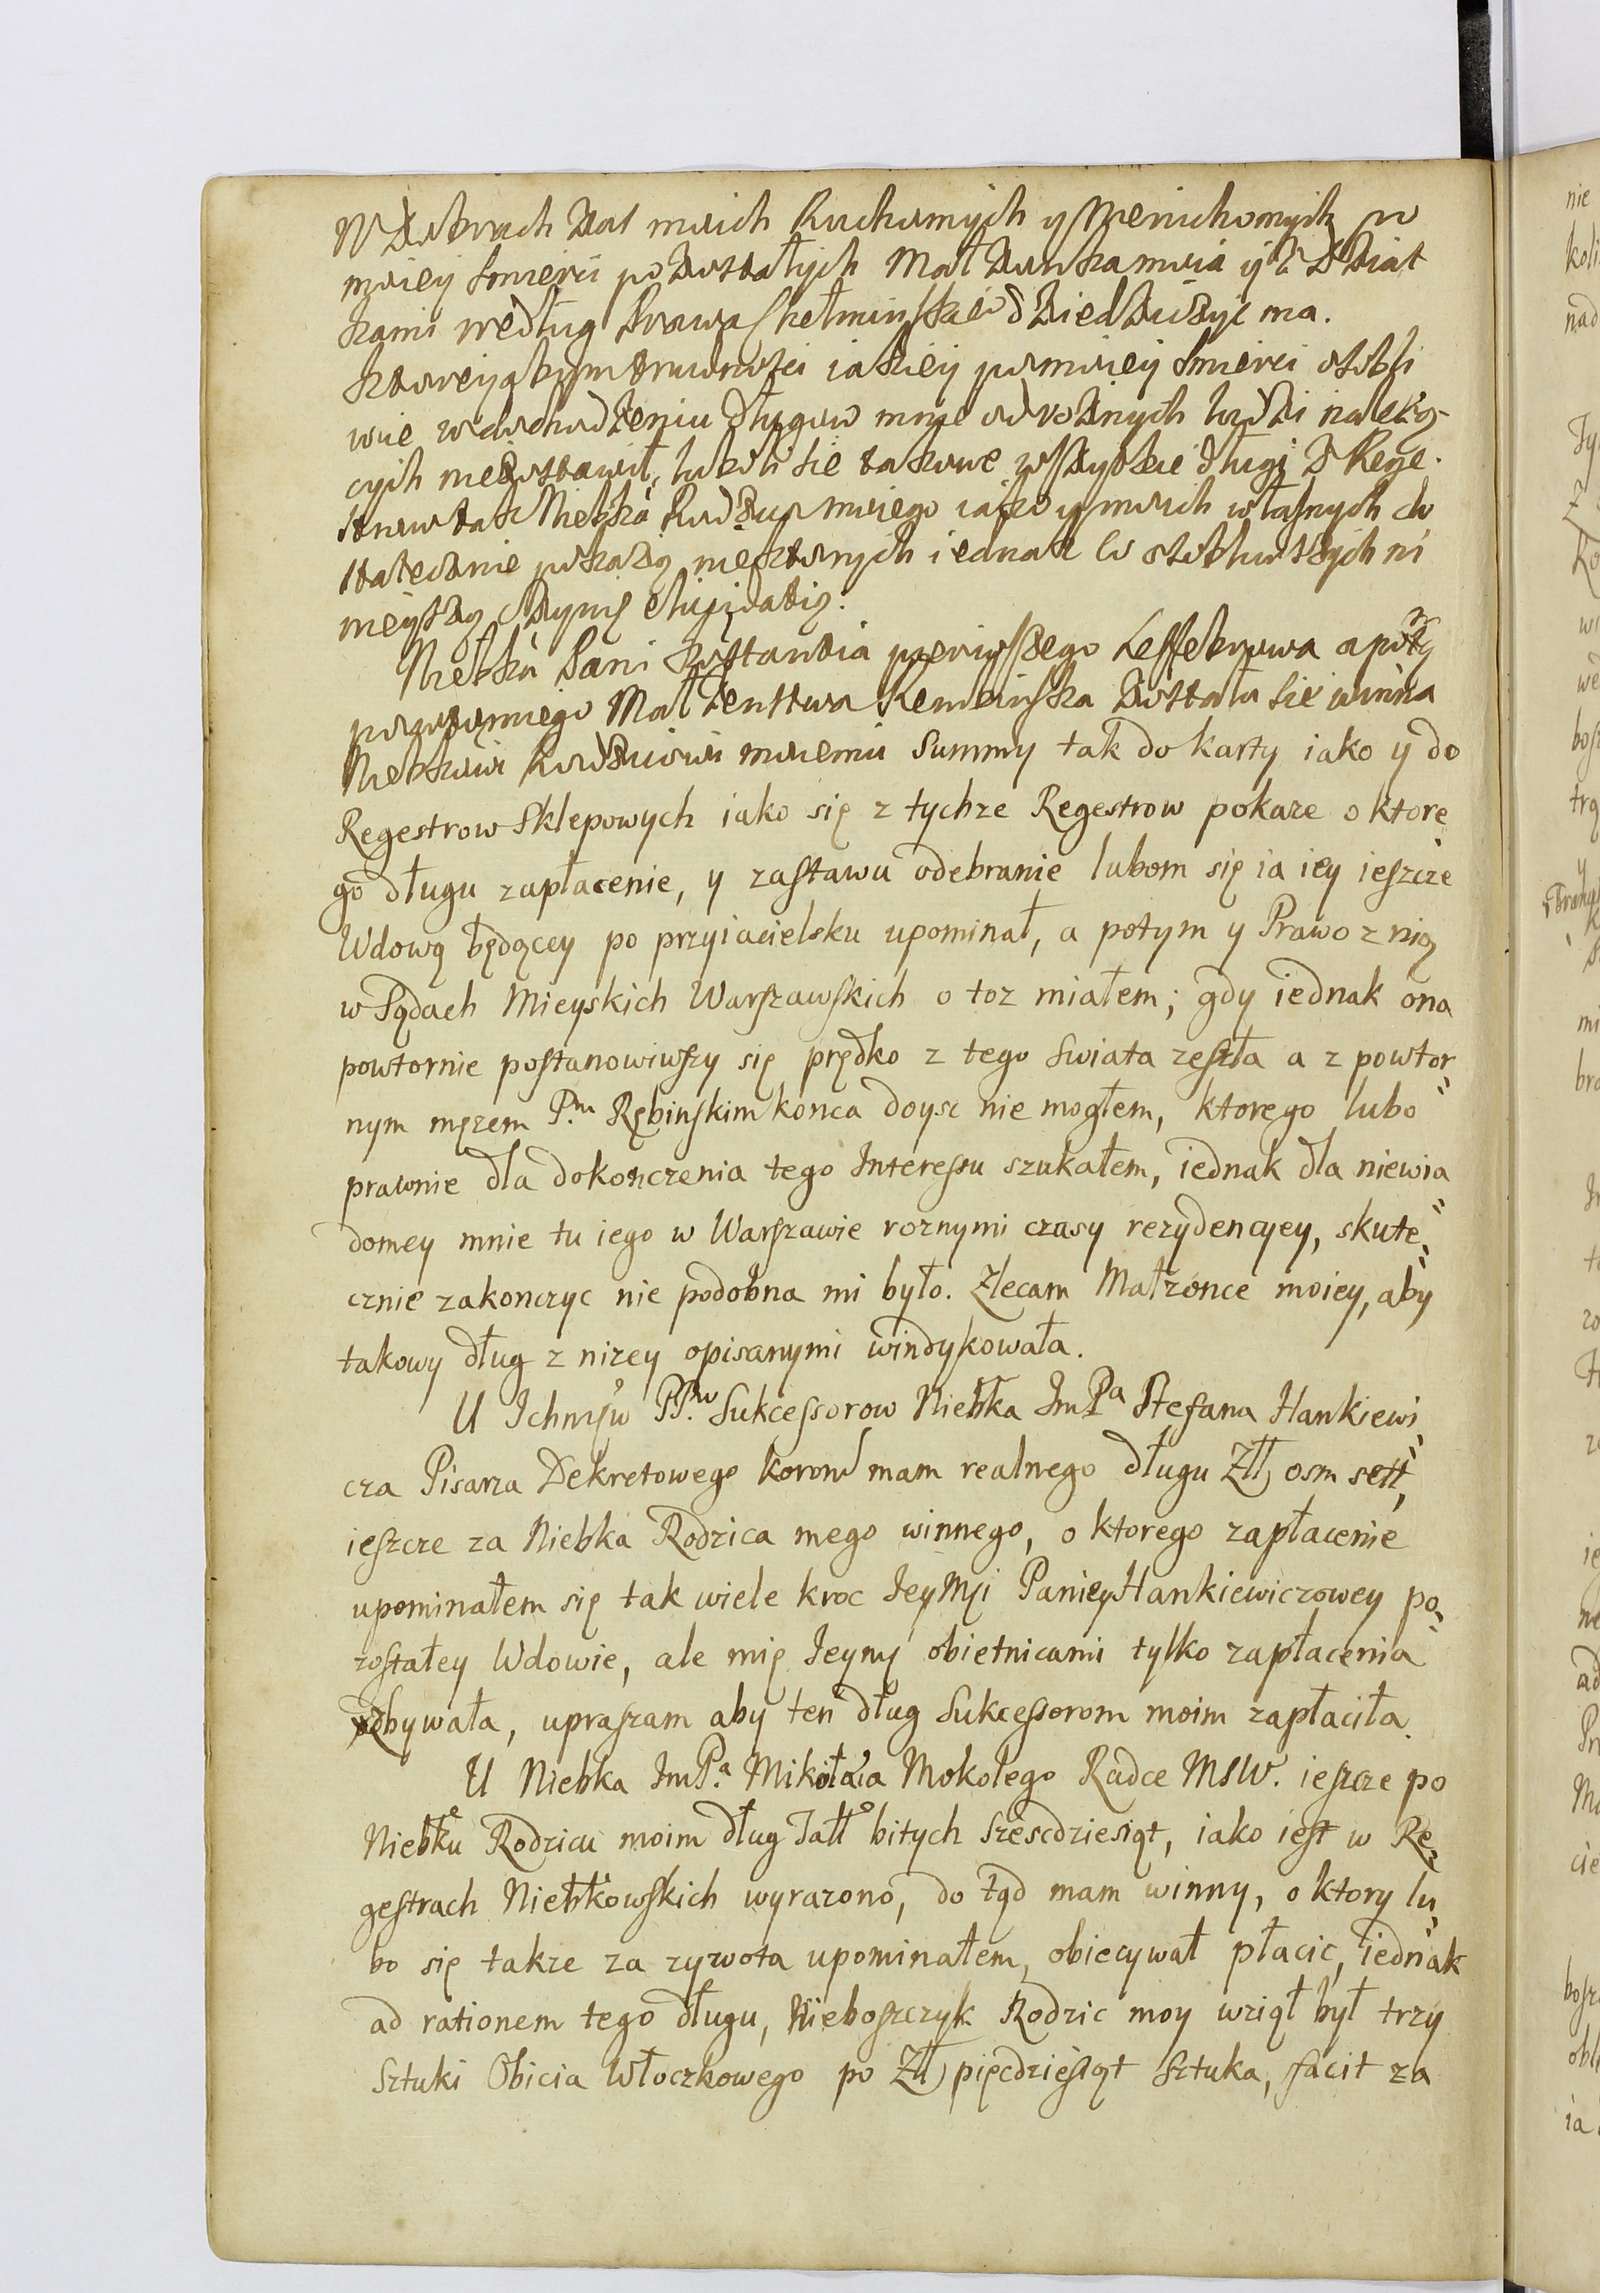 W Dobrach zas moich Ruchomych y Nieruchomych po
moiey smierci pozostałych Małzonka moia y z Dziat
kami według Prawa Chełminskie° dziedziczyc ma.
Ktoreyabym trudnosci iakiey po moiey smierci osobli
wie w dochodzeniu długow mnie od roznych ludzi nalezą
cych niezostawił, lubo sie takowe wszytkie długi z Rege
strow tak Niebka Rodzica moiego iako y moich własnych do
statecznie pokazą niektorych iednak co osobliwszych ni
nieyszą czynię elucydatią.
Niebka Pani Konstantia pierwszego Leffebrowa a potym
powtornego Małzenstwa Rembinska Została sie winna
Niebkowi Rodzicowi moiemu Summy tak do karty iako y do
Regestrow Sklepowych iako się z tychze Regestrow pokaze o ktore
go długu zapłacenie, y zastawu odebranie lubom się ia iey ieszcze
Wdową będącey po przyiacielsku upominał, a potym y Prawo z nią
w Sądach Mieyskich Warszawskich o toz miałem; gdy iednak ona
powtornie postanowiwszy się prędko z tego Swiata zeszła a z powtor
nym męzem P.m Rębinskim konca doysc nie mogłem, ktorego lubo
prawnie dla dokonczenia tego Interessu szukałem, iednak dla niewia
domey mnie tu iego w Warszawie roznymi czasy rezydencyey, skute
cznie zakonczyc nie podobna mi było. Zlecam Małzonce moiey, aby
takowy dług z nizey opisanymi windykowała.
U Ichmśw PP.w Sukcessorow Niebka ImPa Stefana Hankiewi
cza Pisarza Dekretowego Koron mam realnego długu Złł osm sett,
ieszcze za Niebka Rodzica mego winnego, o ktorego zapłacenie
upominałem się tak wiele kroc IeyMsi Paniey Hankiewiczowey po
zostałey Wdowie, ale mię Ieymsć obietnicami tylko zapłacenia
zbywała, upraszam aby ten dług Sukcessorom moim zapłaciła.
U Niebka ImP.a Mikołaia Mokołego Radce MSW. ieszcze po
Niebke Rodzicu moim dług Tałł° bitych Szescdziesiąt, iako iest w Re
gestrach Niebkowskich wyrazono, do tąd mam winny, o ktory lu
bo się takze za zywota upominałem, obiecywał płacic, iednak
ad rationem tego długu, Nieboszczyk Rodzic moy wziął był trzy
Sztuki Obicia Włoczkowego po Złł pięcdziesiąt Sztuka, facit za